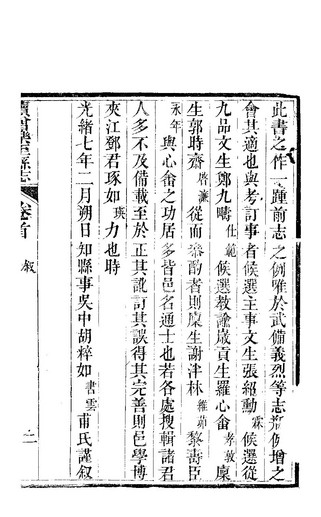 此書之作一踵前志之例唯於武備義烈等志稍增之
會其適也與考訂事者候選主事文生張經勳霖候選從
九品文生鄭九疇仕範候選教諭歲貢生羅心畬孝敦廩
生郭時齋啓謙從而參酌者則廩生謝泮林維茹黎壽臣
永年與心畬之功居多皆邑名通士也若各處搜輯諸君
人多不及備載至於正其訛訂其誤得其完善則邑學博
夾江鄧君琢如璞力也時
光緒七年二月朔日知縣事吳中胡粹如書雲甫氏謹敘
卷首
敘